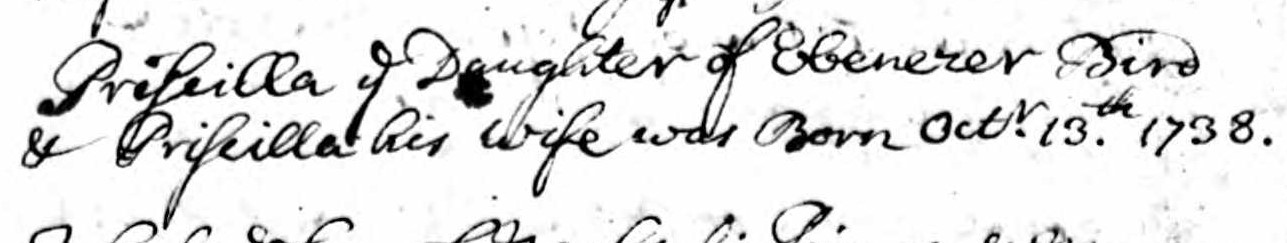 Priſcilla yͤ Daughter of Ebenezer Bird
& Priſcilla his wife was Born Octʳ. 13.ᵗʰ 1738.